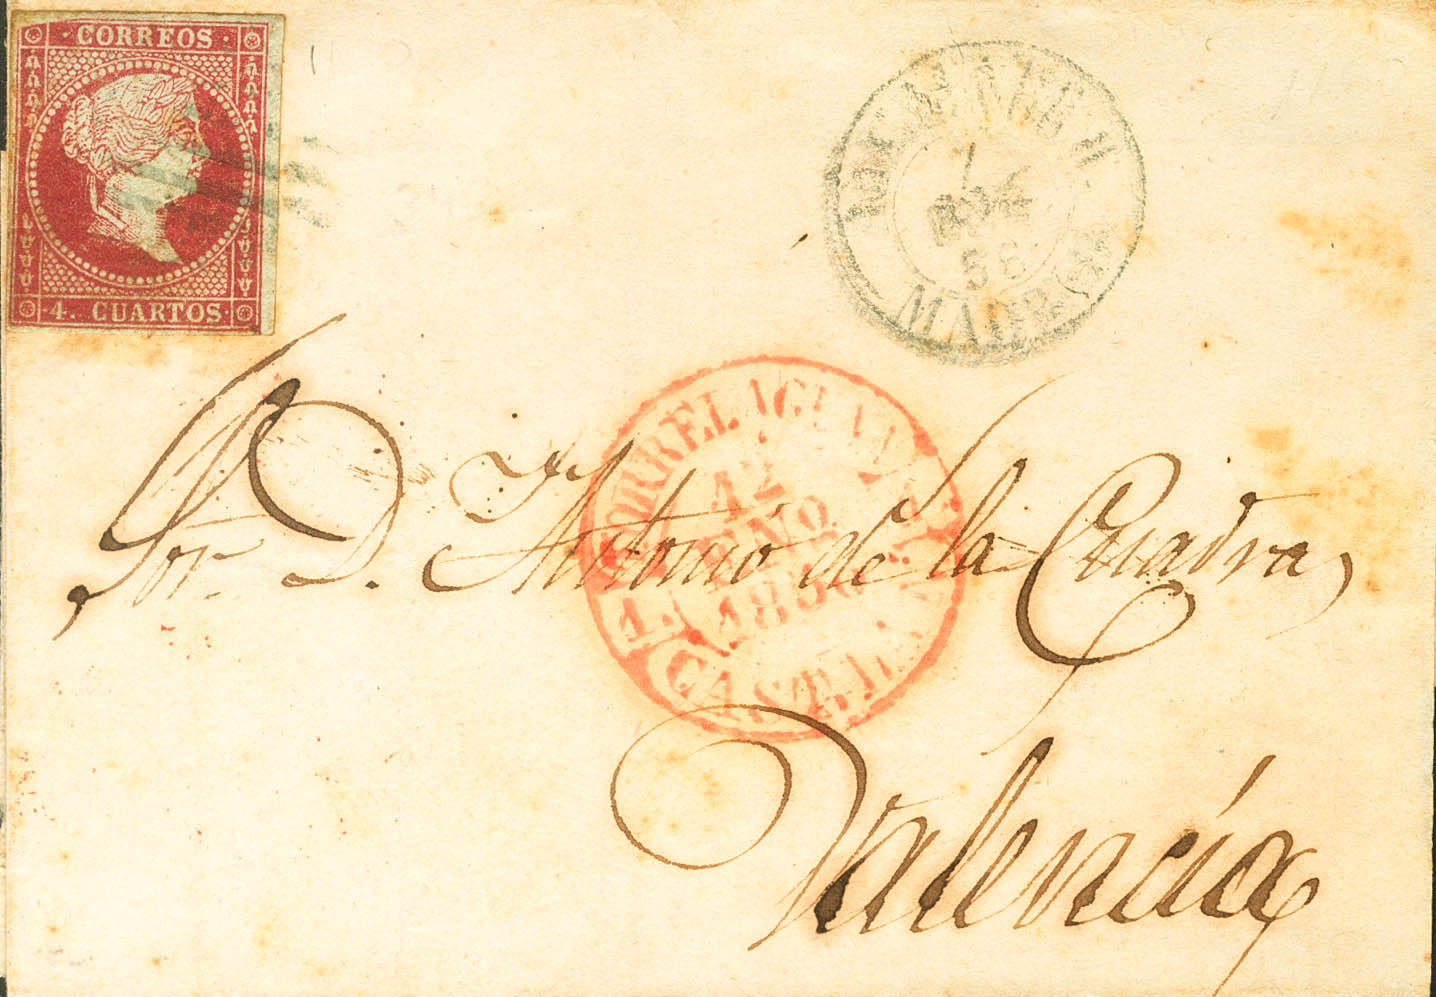 CORREOS
4. CUARTOS
MADRID
TORRELAGUNA
12
ENO
185
CAST
Sor. D. Antonio de la Cuadra,
Valencia